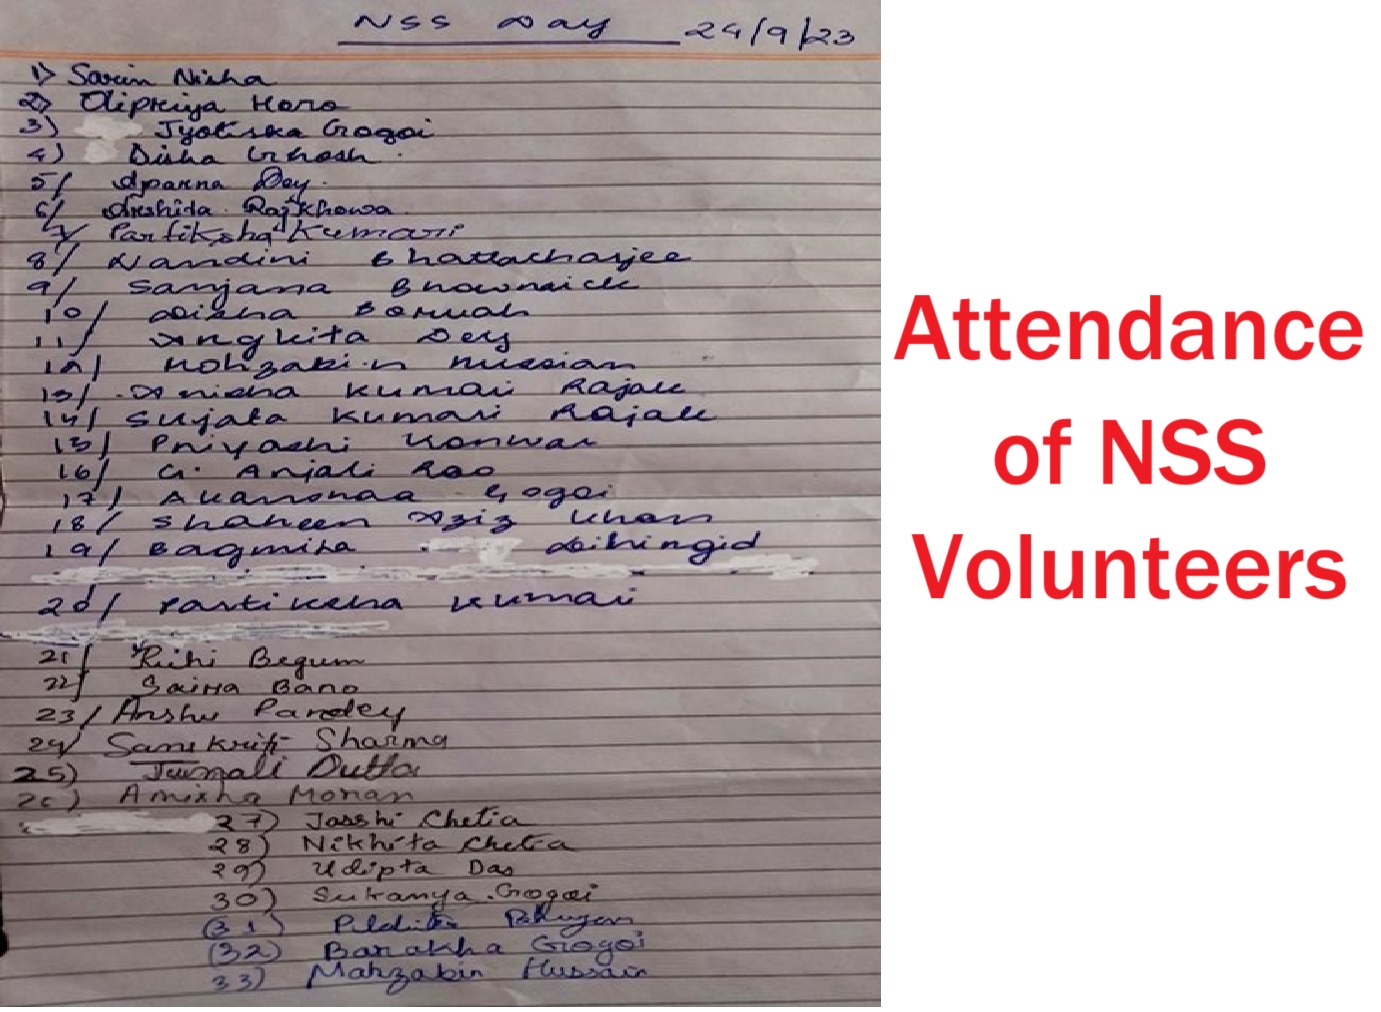 NSS Day 24/9/23
1) Sarin Nisha
2) Olipriya Hora
3) Jyotiska Gogoi
4) Disha Ghosh
5/ Aparna Dey
6/ Arshita Rajkhowa
7/ Partiksha Kumari
8/ Nandini Bhattacharjee
9/ Sanjana Bhowmick
10/ Disha Boruah
11/ Angkita Dey
12/ Mohzabin Hussian
13/ Anisha Kumari Rajak
14/ Sujata Kumari Rajak
15/ Priyashi Konwar
16/ G. Anjali Rao
17/ Gogoi
18/ Shaheen Aziz Khan
19/ Bagmita Dihingia
20/ Partiksha Kumari
21/ Ruhi Begum
22/ Saira Bano
23/ Anshu Pandey
24/ Sanskriti Sharma
25) Jumali Dutta
26) Amisha Moran
27) Jasshi Chetia
28) Nikhita Chetia
29) Udipta Das
30) Sukanya Gogoi
(31)
(32) Barakha Gogoi
33) Mahzabin Hussain
Attendance
of NSS
Volunteers